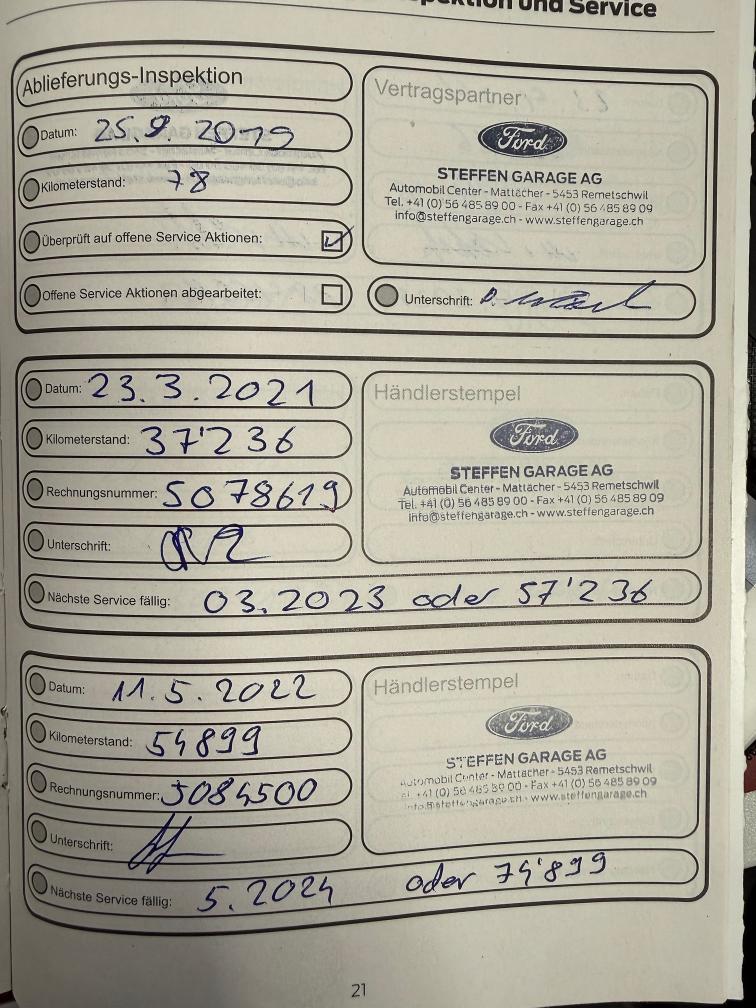 und Service
Ablieferungs-Inspektion
Datum: 25.9.2019
Kilometerstand: 78
Überprüft auf offene Service Aktionen:
Offene Service Aktionen abgearbeitet:
Vertragspartner
Ford
STEFFEN GARAGE AG
Automobil Center - Mattächer - 5453 Remetschwil
Tel. +41 (0) 56 485 89 00 - Fax +41 (0) 56 485 89 09
info@steffengarage.ch - www.steffengarage.ch
Unterschrift:
Datum: 23.3.2021
Kilometerstand: 37'236
Rechnungsnummer: 5078619
Unterschrift:
Händlerstempel
Ford
STEFFEN GARAGE AG
Automobil Center - Mattächer - 5453 Remetschwil
Tel. +41 (0) 56 485 89 00 - Fax +41 (0) 56 485 89 09
info@steffengarage.ch - www.steffengarage.ch
Nächste Service fällig: 03.2023 oder 57'236
Datum: 11.5.2022
Kilometerstand: 54899
Rechnungsnummer: 5084500
Unterschrift:
Händlerstempel
Ford
STEFFEN GARAGE AG
Automobil Center - Mattächer - 5453 Remetschwil
+41 (0) 56 485 89 00 - Fax +41 (0) 56 485 89 09
www.steffengarage.ch
Nächste Service fällig: 5.2024 oder 74'899
21